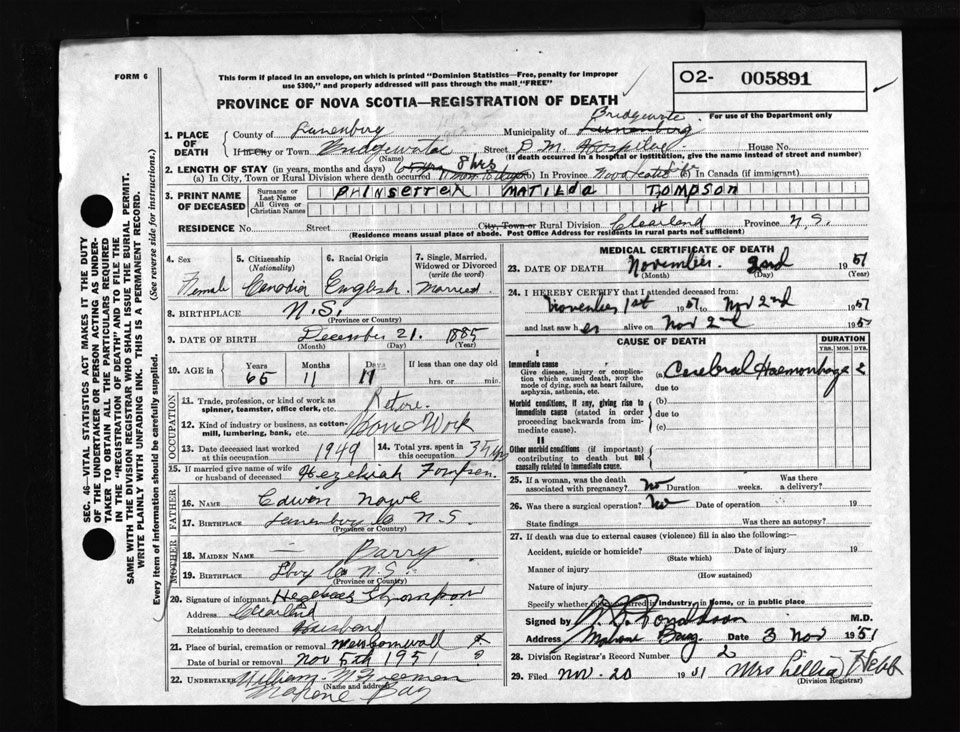 FORM 6
This form if placed in an envelope, on which is printed "Dominion Statistics—Free, penalty for improper
use $300," and properly addressed will pass through the mail "FREE"
O2- 005891
PROVINCE OF NOVA SCOTIA—REGISTRATION OF DEATH
For use of the Department only
1. PLACE OF DEATH
County of Lunenburg Municipality of Lunenburg Bridgewater
If in City or Town Bridgewater Street D.M. Hospital House No.
(Name) (If death occurred in a hospital or institution, give the name instead of street and number)
2. LENGTH OF STAY (in years, months and days)
(a) In City, Town or Rural Division where death occurred 8 hrs (b) In Province Nova Scotia Life (c) In Canada (if immigrant)
3. PRINT NAME OF DECEASED
Surname or Last Name
All Given or Christian Names
MATILDA TOMPSON
H
RESIDENCE No. Street City, Town or Rural Division Clearland Province N.S.
(Residence means usual place of abode. Post Office Address for residents in rural parts not sufficient)
4. Sex
Female
5. Citizenship (Nationality)
Canadia
6. Racial Origin
English.
7. Single, Married, Widowed or Divorced (write the word)
Married
8. BIRTHPLACE N.S.
(Province or Country)
9. DATE OF BIRTH December 21. 1885
(Month) (Day) (Year)
10. AGE in
Years Months Days If less than one day old
65 11 11 hrs. or min.
OCCUPATION
11. Trade, profession, or kind of work as
spinner, teamster, office clerk, etc.
Retire.
12. Kind of industry or business, as cotton-
mill, lumbering, bank, etc.
Home Work
13. Date deceased last worked
at this occupation 1949
14. Total yrs. spent in
this occupation 35 yr
15. If married give name of wife
or husband of deceased Hezekiah Tompson.
FATHER
16. NAME Edwin Nowe
17. BIRTHPLACE Lunenburg Co N.S.
(Province or Country)
MOTHER
18. MAIDEN NAME — Barry
19. BIRTHPLACE Co N.S.
(Province or Country)
20. Signature of informant Thompson
Address Clearland
Relationship to deceased Husband
21. Place of burial, cremation or removal
Date of burial or removal Nov 5th 1951 ?
22. UNDERTAKER William
(Name and address)
Mahone Bay
MEDICAL CERTIFICATE OF DEATH
23. DATE OF DEATH November 2nd 1951
(Month) (Day) (Year)
24. I HEREBY CERTIFY that I attended deceased from:
November 1st 1951 to Nov 2nd 1951
and last saw her alive on Nov 2nd 1951
CAUSE OF DEATH
DURATION
YRS. MOS. DYS.
I
Immediate cause
Give disease, injury or complica-
tion which caused death, NOT the
mode of dying, such as heart failure,
asphyxia, asthenia, etc.
(a) Cerebral Haemorrhage 2
due to
Morbid conditions, if any, giving rise to
immediate cause (stated in order
proceeding backwards from im-
mediate cause).
(b)
due to
(c)
II
Other morbid conditions (if important)
contributing to death but not
causally related to immediate cause.
25. If a woman, was the death
associated with pregnancy? No Duration weeks. Was there
a delivery?
26. Was there a surgical operation? No Date of operation 19
State findings Was there an autopsy?
27. If death was due to external causes (violence) fill in also the following:—
Accident, suicide or homicide? Date of injury 19
(State which)
Manner of injury
(How sustained)
Nature of injury
Specify whether injury occurred in industry, in home, or in public place
Signed by Donaldson M.D.
Address Mahone Bay Date 3 Nov 1951
28. Division Registrar's Record Number 2
29. Filed Nov. 20 1951 Mrs Lillia Hebb
(Division Registrar)
SEC. 46—VITAL STATISTICS ACT MAKES IT THE DUTY
OF THE UNDERTAKER OR PERSON ACTING AS UNDER-
TAKER TO OBTAIN ALL THE PARTICULARS REQUIRED
IN THE "REGISTRATION OF DEATH" AND TO FILE THE
SAME WITH THE DIVISION REGISTRAR WHO SHALL ISSUE THE BURIAL PERMIT.
WRITE PLAINLY WITH UNFADING INK. THIS IS A PERMANENT RECORD.
Every item of information should be carefully supplied. (See reverse side for instructions.)